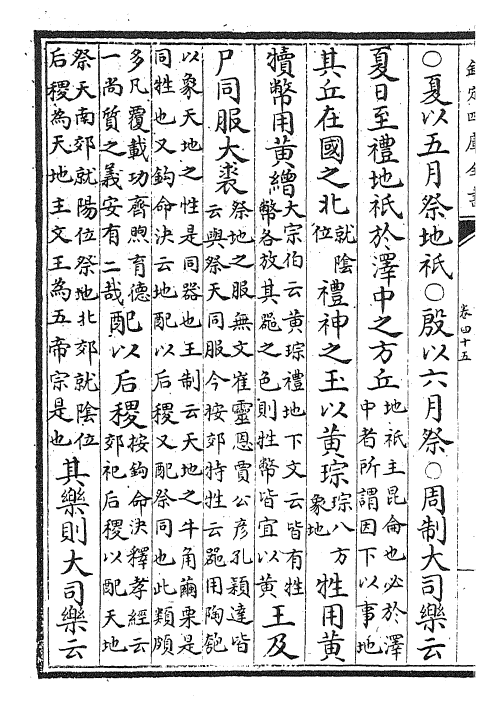 欽定四庫全書
卷四十五
○夏以五月祭地祇○殷以六月祭○周制大司樂云
夏日至禮地祇於澤中之方丘地祇主昆侖也必於澤中者所謂因下以事地
其丘在國之北就陰位禮神之玉以黃琮琮八方象地牲用黃
犢幣用黃繒大宗伯云黃琮禮地下文云皆有牲幣各放其器之色則牲幣皆宜以黃王及
尸同服大裘祭地之服無文崔靈恩賈公彦孔穎達皆云與祭天同服今按郊特牲云器用陶匏
以象天地之性是同器也王制云天地之牛角繭栗是同牲也又鈎命決云地配以后稷又配祭同也此類頗
多凡覆載功齊煦育德一尚質之義安有二哉配以后稷按鈎命決釋孝經云郊祀后稷以配天地
祭天南郊就陽位祭地北郊就陰位后稷為天地主文王為五帝宗是也其樂則大司樂云